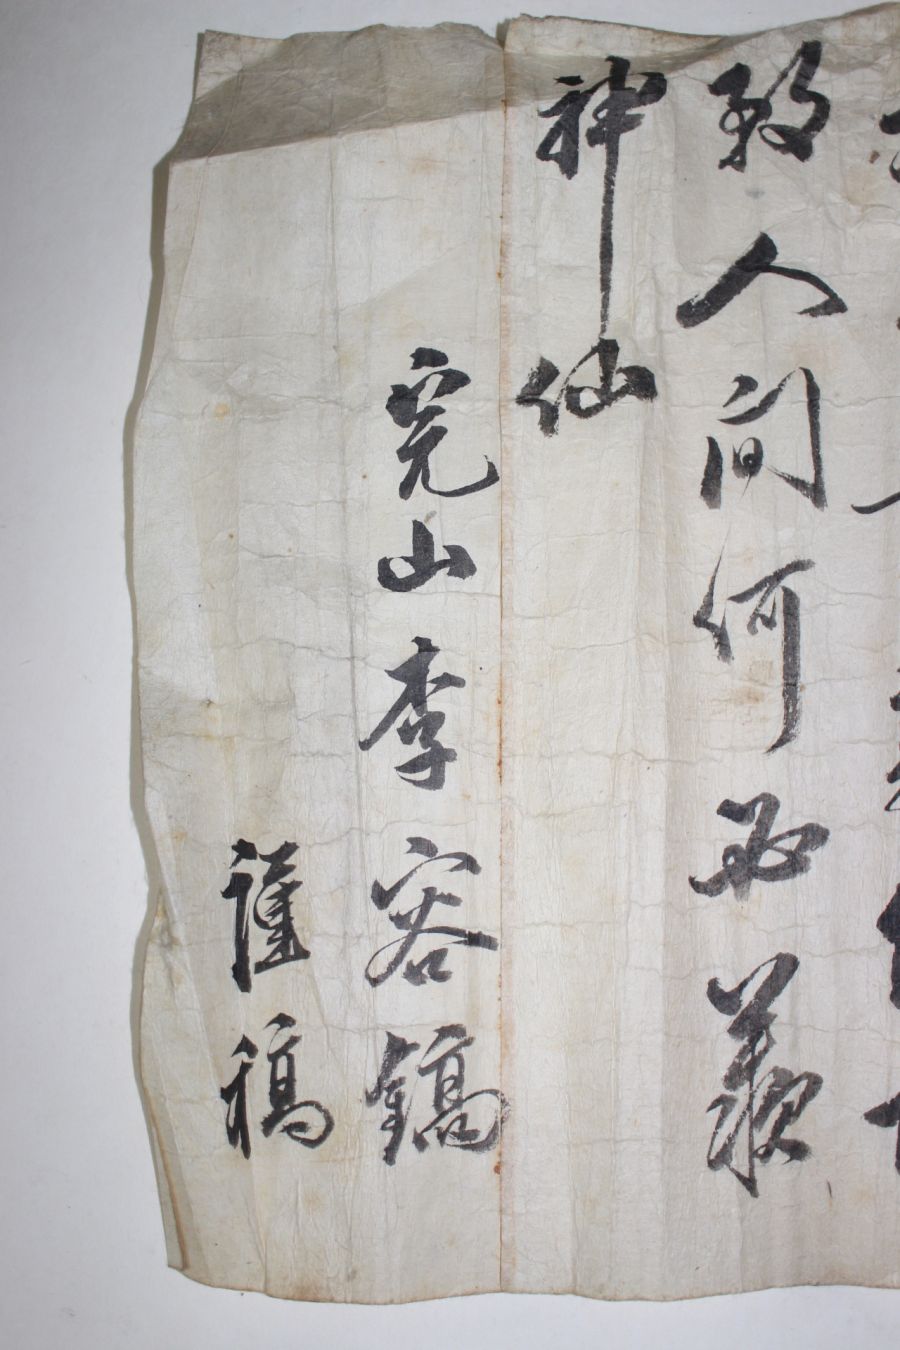 致人间何必羨
神仙
完山李容鎬
謹稿